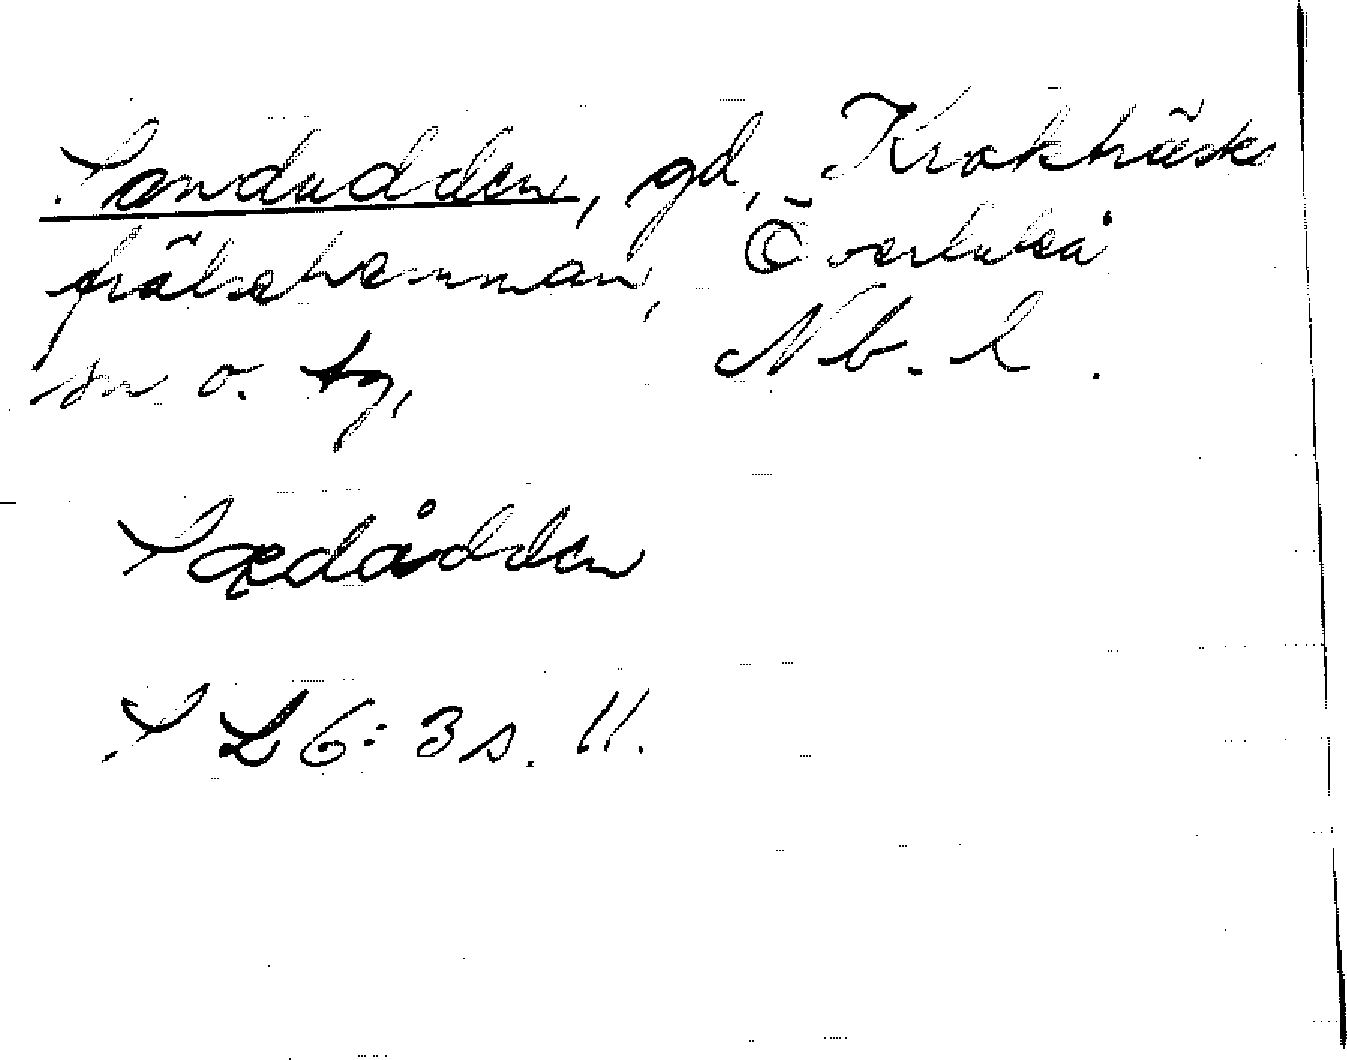 Sandudden, gd, Krokträsks
frälsehemman, Överluleå
sn o. tg, Nb. l.
Sædådden
S L 6: 3 s. 11.